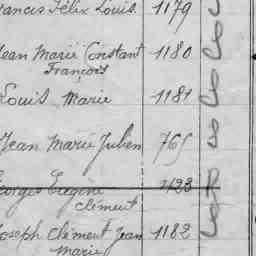 Francis Félix Louis 1179
Jean Marie Constant 1180
François
Louis Marie 1181
Jean Marie Julien 765
Georges Eugène 1123
Clément
Joseph Clément Jean 1182
Marie